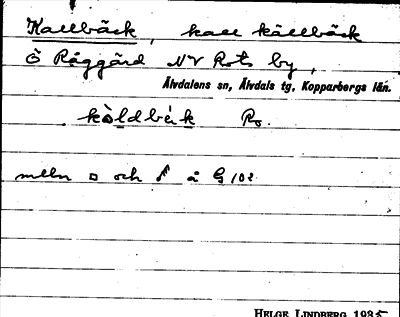 Kallbäck, kall källbäck
Ö Råggärd NV Rots by,
Älvdalens sn, Älvdals tg, Kopparbergs län.
kàldbèk Ro.
melln □ och å G 102
HELGE LINDBERG 1935